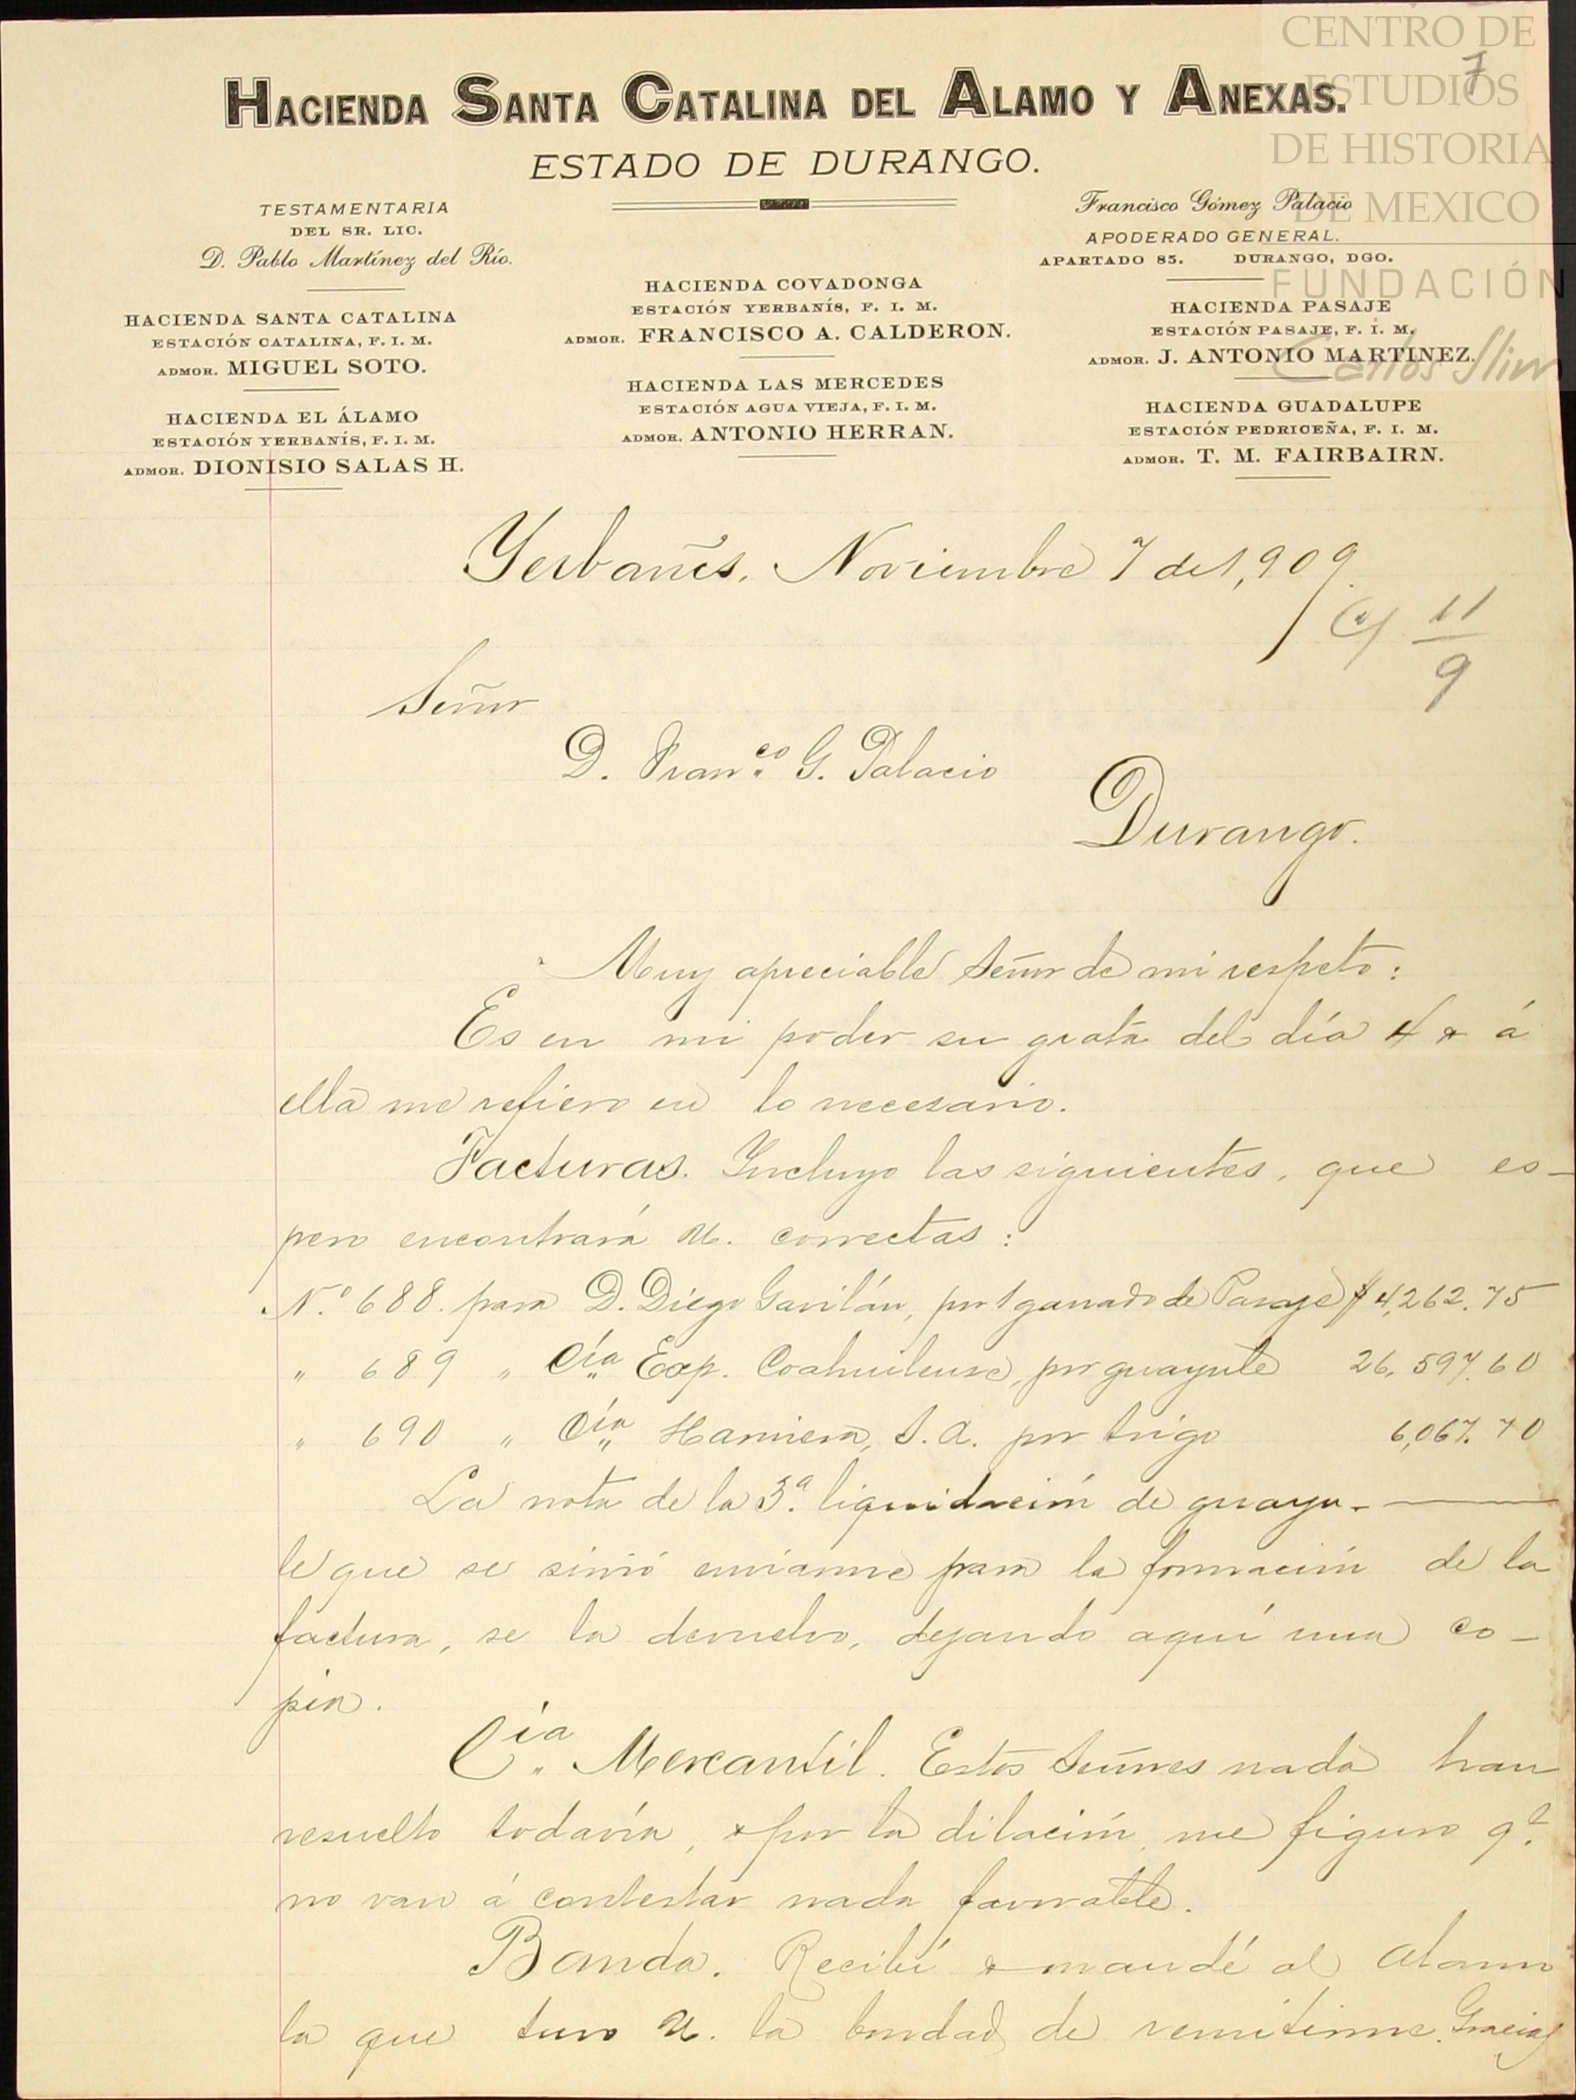 CENTRO DE
ESTUDIOS
DE HISTORIA
DE MEXICO
FUNDACIÓN
Carlos Slim
7
HACIENDA SANTA CATALINA DEL ALAMO Y ANEXAS.
ESTADO DE DURANGO.
TESTAMENTARIA
DEL SR. LIC.
D. Pablo Martínez del Río.
HACIENDA SANTA CATALINA
ESTACIÓN CATALINA, F. I. M.
ADMOR. MIGUEL SOTO.
HACIENDA EL ÁLAMO
ESTACIÓN YERBANÍS, F. I. M.
ADMOR. DIONISIO SALAS H.
HACIENDA COVADONGA
ESTACIÓN YERBANÍS, F. I. M.
ADMOR. FRANCISCO A. CALDERON.
HACIENDA LAS MERCEDES
ESTACIÓN AGUA VIEJA, F. I. M.
ADMOR. ANTONIO HERRAN.
Francisco Gómez Palacio
APODERADO GENERAL.
APARTADO 85. DURANGO, DGO.
HACIENDA PASAJE
ESTACIÓN PASAJE, F. I. M.
ADMOR. J. ANTONIO MARTINEZ.
HACIENDA GUADALUPE
ESTACIÓN PEDRICEÑA, F. I. M.
ADMOR. T. M. FAIRBAIRN.
Yerbanís, Noviembre 7 de 1,909.
11
9
Señor
D. Fran.co G. Palacio
Durango.
Muy apreciable Señor de mi respeto:
Es en mi poder su grata del día 4 & á
ella me refiero en lo necesario.
Facturas. Incluyo las siguientes, que es-
pero encontrará U. correctas:
N.º 688. para D. Diego Gavilán, por ganado de Pasaje $ 4,262.75
" 689 " Cía. Exp. Coahuilense, por guayule 26,597.60
" 690 " Cía. Harinera, S.A. por trigo 6,067.70
La nota de la 3.ª liquidación de guayu-
le que se sirvió enviarme para la formación de la
factura, se la devuelvo, dejando aquí una co-
pia.
Cía. Mercantil. Estos Señores nada han
resuelto todavía, & por la dilación, me figuro q.e
no van á contestar nada favorable.
Banda. Recibí & mandé al Alamo
la que tuvo U. la bondad de remitirme. Gracias